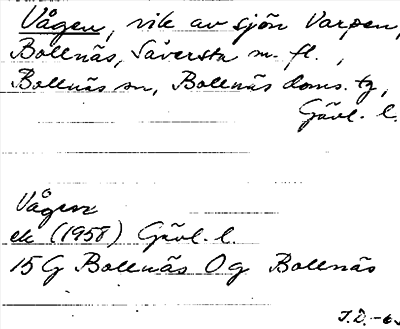 Vågen, vik av sjön Varpen,
Bollnäs, Säversta m. fl.,
Bollnäs sn, Bollnäs doms. tg,
Gävl. l.
Vågen
ek (1958) Gävl. l.
15G Bollnäs 0g Bollnäs
J.D. -6